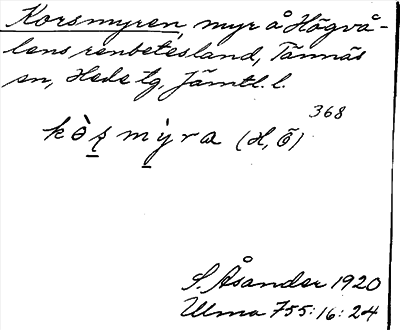 Korsmyren, myr å Högvå-
lens renbetesland, Tännäs
sn, Hede tg, Jämtl. l.
368
kòș mỳra (H, Ö)
S. Åsander 1920
Ulma 755:16:24